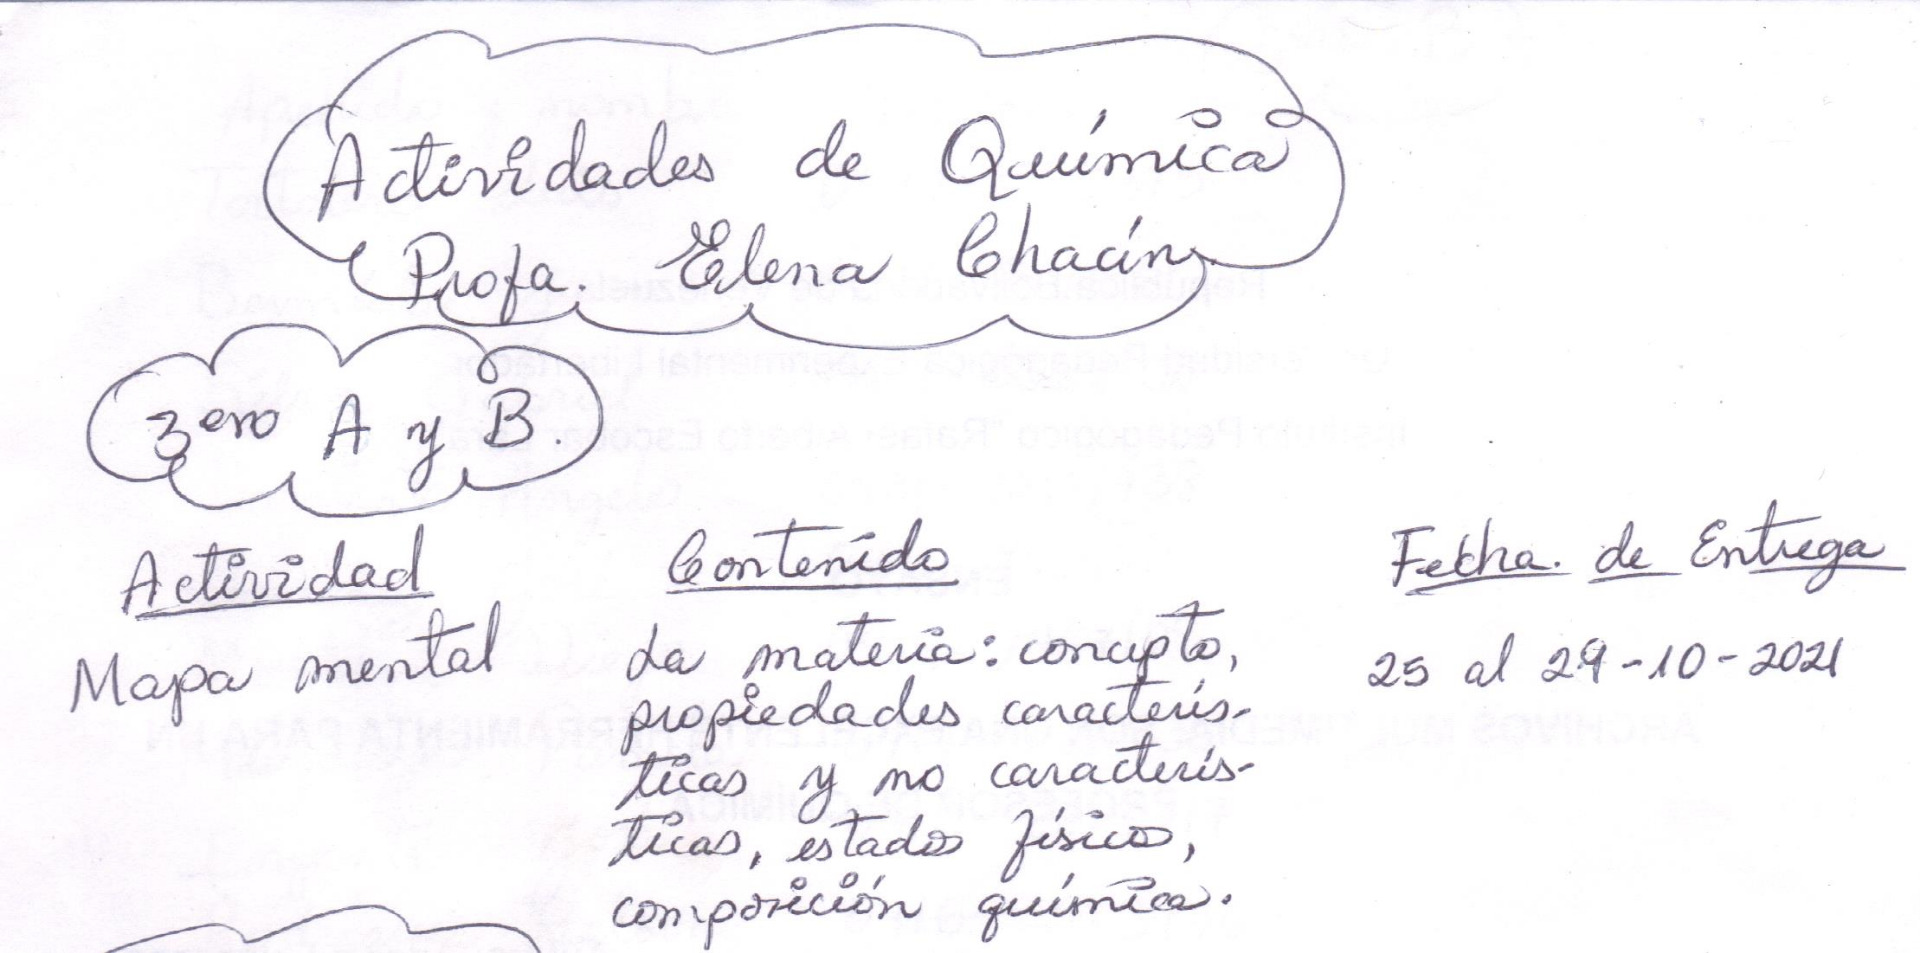 Actividades de Química
Profa. Elena Chacín
3ero A y B.
Actividad Contenido Fecha de Entrega
Mapa mental La materia: concepto, 25 al 29-10-2021
propiedades caracterís-
ticas y no caracterís-
ticas, estados físicos,
composición química.